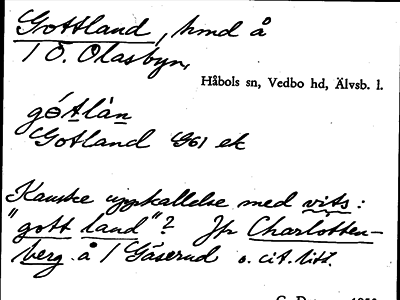 Gottland, hmd å
1 Ö. Olasbyn,
Håbols sn, Vedbo hd, Älvsb. l.
gótlàn
Gotland G61 ek
Kanske uppkallelse med vits:
"gott land"? Jfr Charlotten-
berg å 1 Gäserud o. cit. litt.